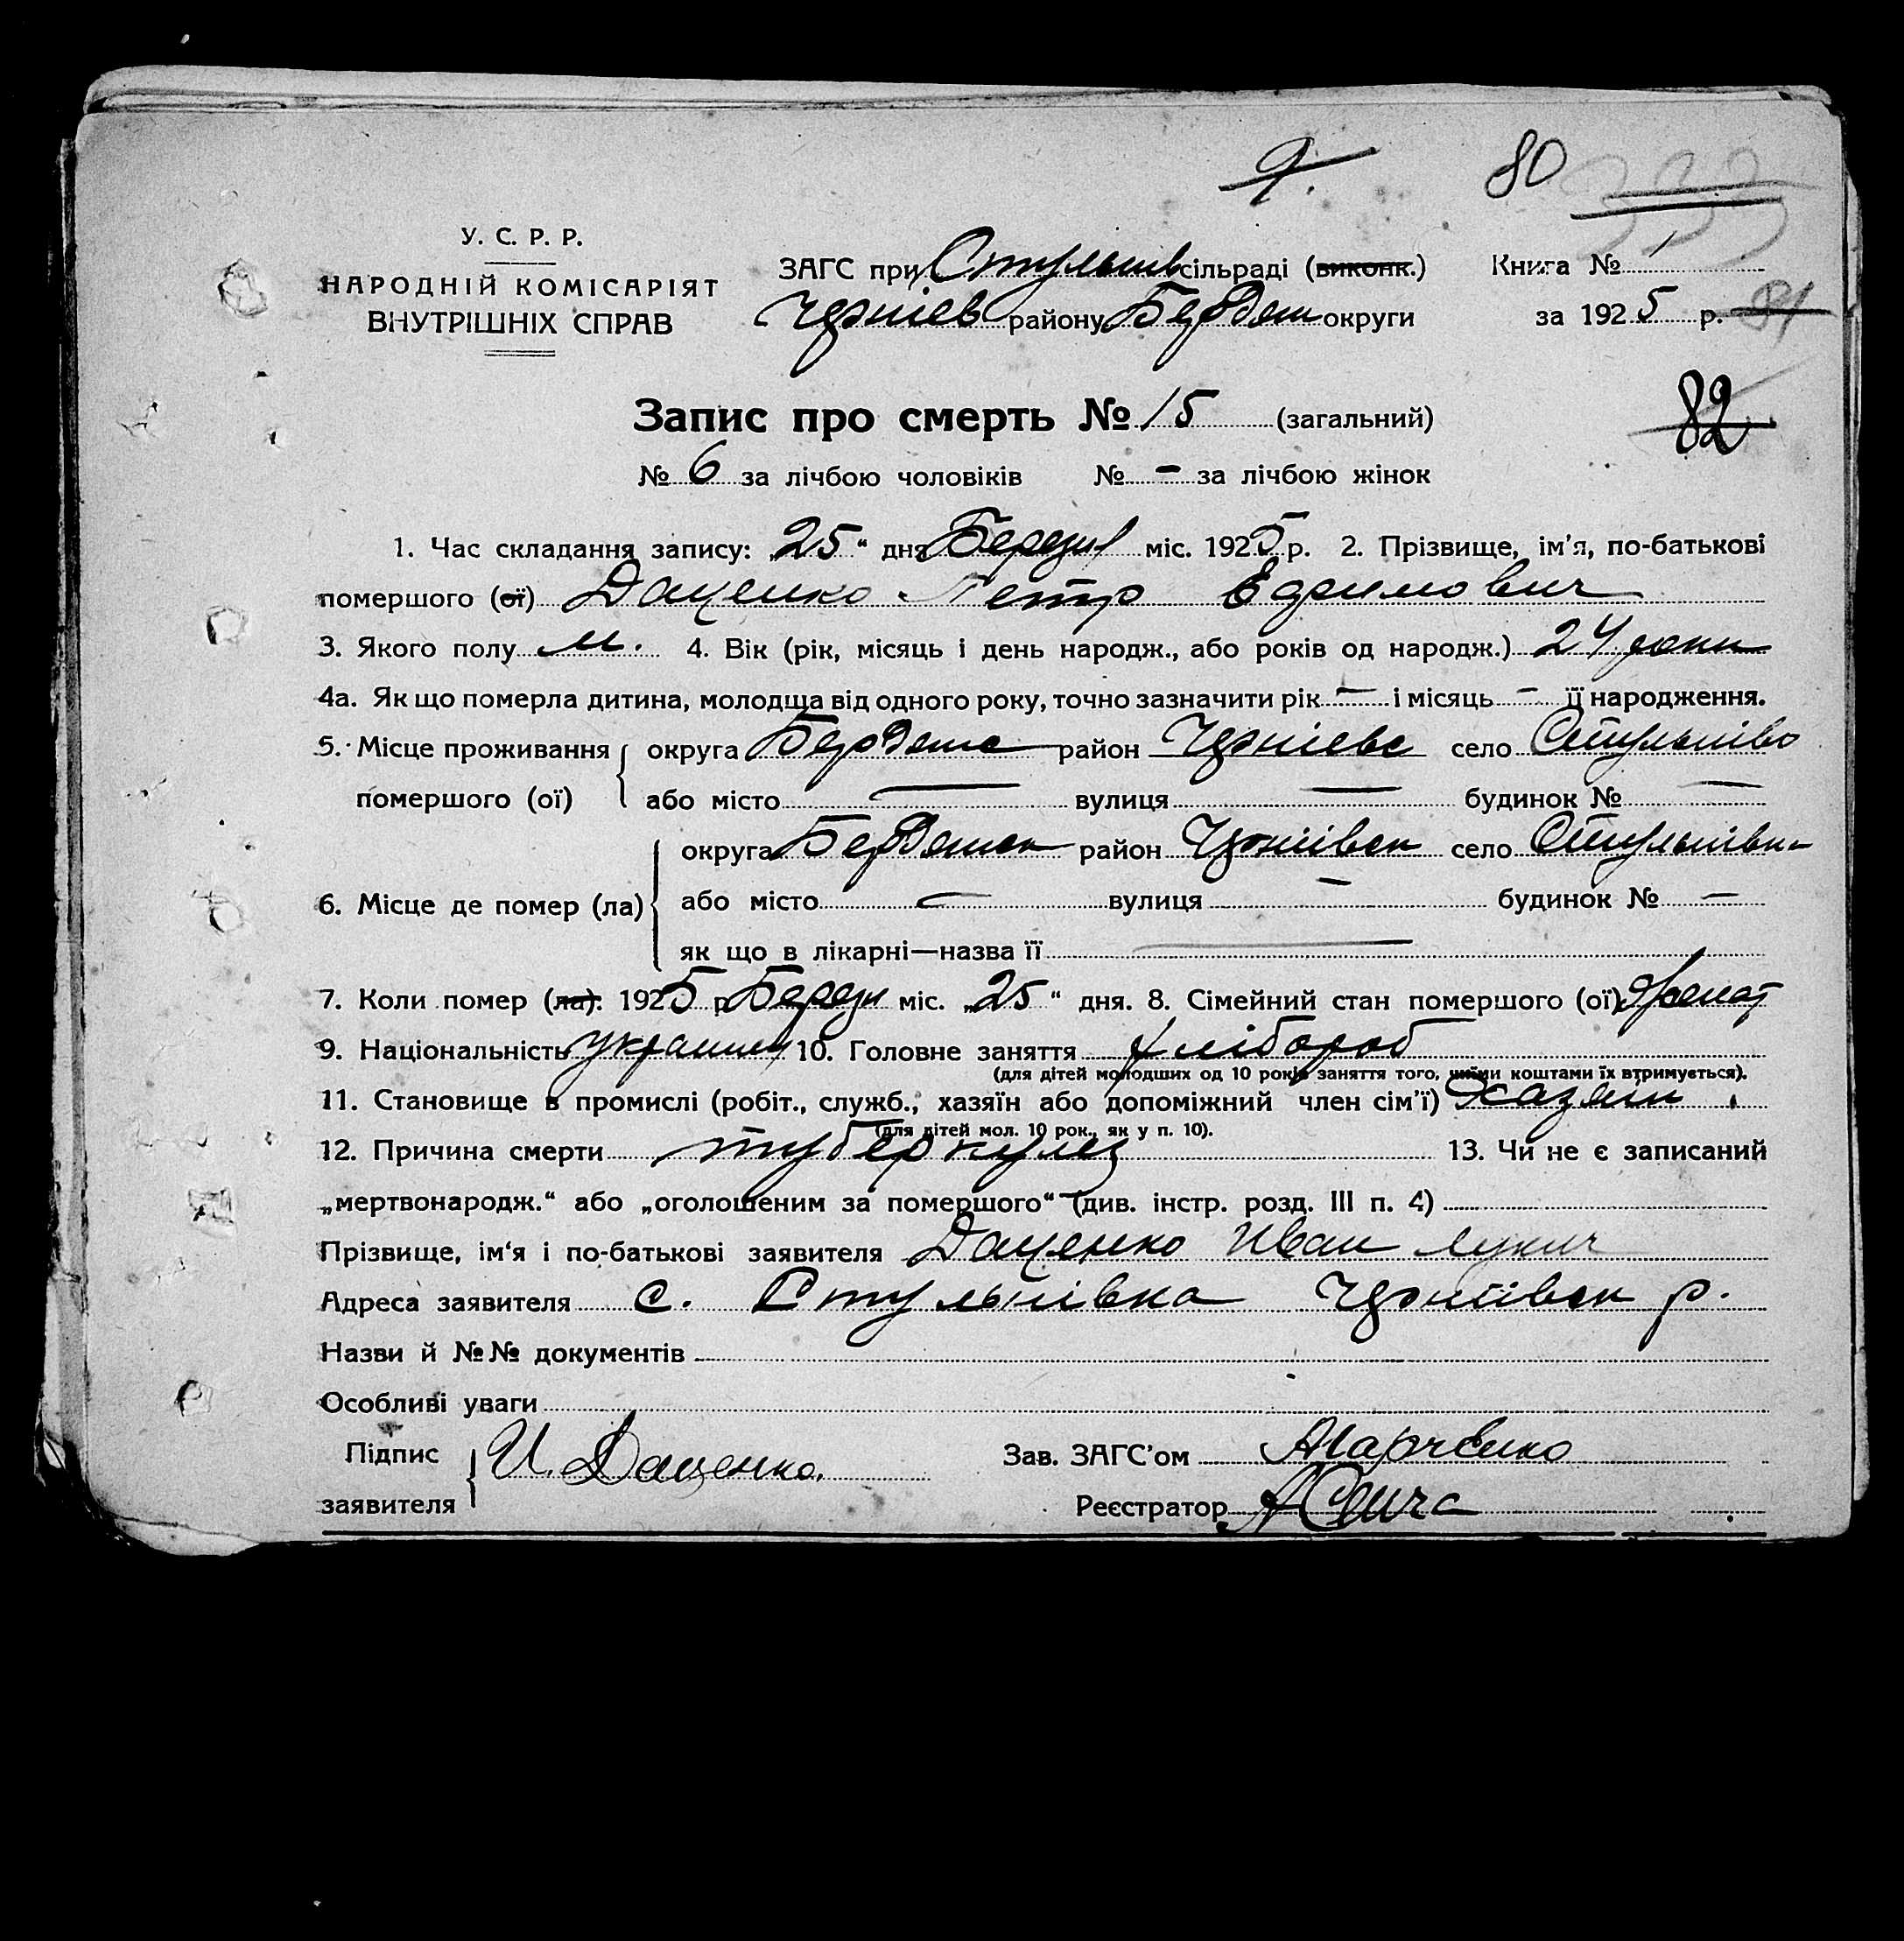 9. 80
У. С. Р. Р.
НАРОДНІЙ КОМІСАРІЯТ
ВНУТРІШНІХ СПРАВ
ЗАГС при Стульнів сільраді (виконк.) Книга № 1
Черніев району Бердян округи за 1925 р. 81
82
Запис про смерть № 15 (загальний)
№ 6 за лічбою чоловіків № - за лічбою жінок
1. Час складання запису: 25 “ дня Березня міс. 1925 р. 2. Прізвище, ім'я, по-батькові
помершого (ої) Даценко Петр Ефимович
3. Якого полу м. 4. Вік (рік, місяць і день народж., або років од народж.) 24 роки
4а. Як що померла дитина, молодща від одного року, точно зазначити рік — і місяць - її народження.
5. Місце проживання округа Бердянс район Черніевс село Стульнівк
помершого (ої) або місто — вулиця — будинок № —
округа Бердянск район Чернівск село Стульнівка
6. Місце де помер (ла) або місто — вулиця — будинок № —
як що в лікарні—назва її —
7. Коли помер (ла): 1925 р. Березн міс. „25 “ дня. 8. Сімейний стан помершого (ої) Женат
9. Національність украинц 10. Головне заняття хлібороб
(для дітей молодших од 10 років заняття того, чиїми коштами їх втримується).
11. Становище в промислі (робіт., служб., хазяїн або допоміжний член сім'ї) Хазяін
(для дітей мол. 10 рок., як у п. 10).
12. Причина смерти туберкулез 13. Чи не є записаний
„мертвонародж.“ або „оголошеним за помершого“ (див. інстр. розд. III п. 4)
Прізвище, ім'я і по-батькові заявителя Даценко Иван Лукич
Адреса заявителя с. Стульнівка Чернівск р.
Назви й №№ документів
Особливі уваги
Підпис И. Даценко. Зав. ЗАГС'ом Марченко
заявителя Реєстратор